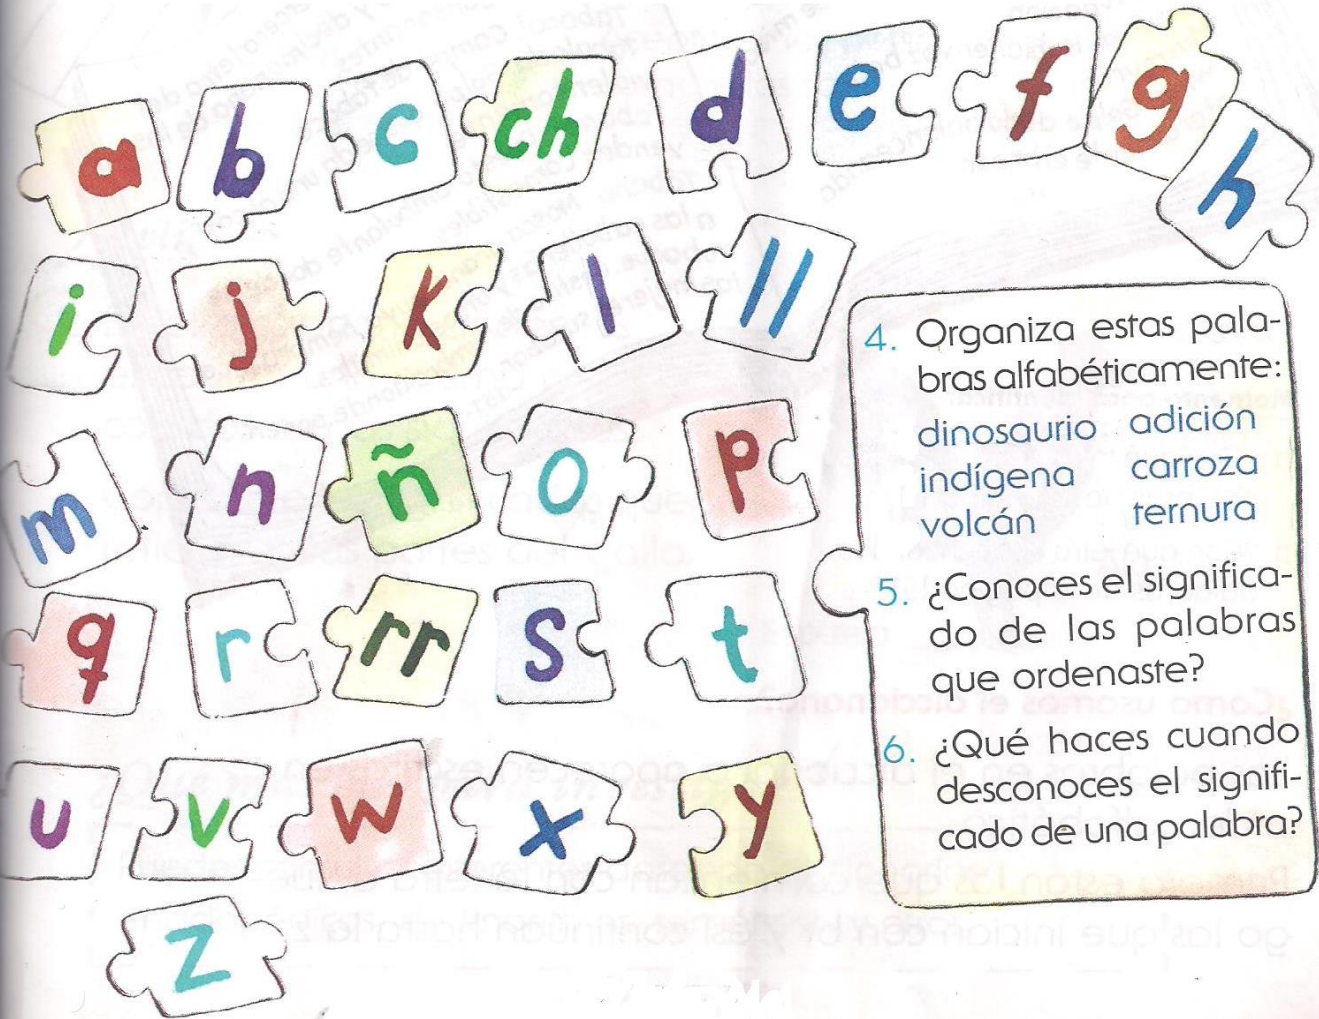 a b c ch d e f g h
i j k l ll
m n ñ o p
q r rr s t
u v w x y
z
4. Organiza estas pala-
bras alfabéticamente:
dinosaurio adición
indígena carroza
volcán ternura
5. ¿Conoces el significa-
do de las palabras
que ordenaste?
6. ¿Qué haces cuando
desconoces el signifi-
cado de una palabra?